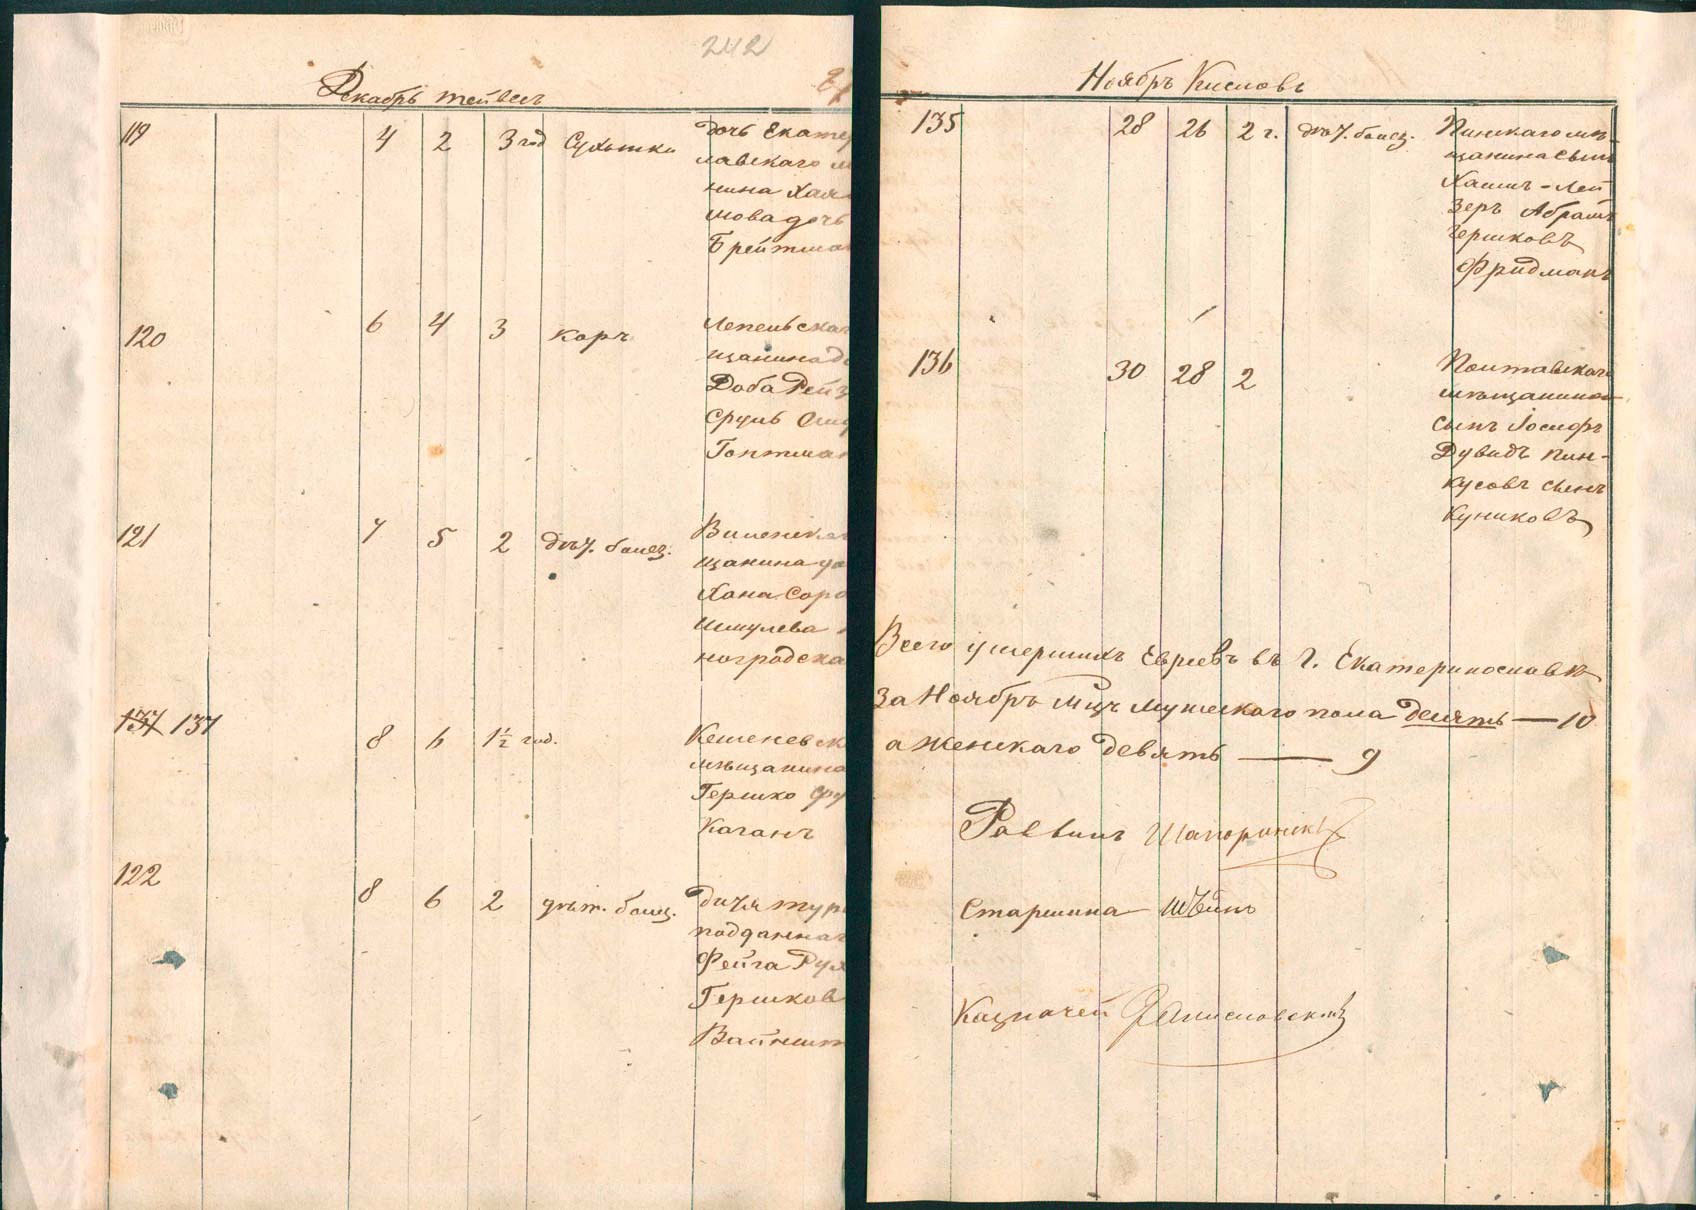 242
Декабрь тейвесъ
119 4 2 3 год Сухотки дочь Екате
лавскаго
нина Хая
мова дочь
Брейтма
120 6 4 3 корь Лепельска
щанина
Доба Рей
Сруль
Гоптма
121 7 5 2 дѣт. болез. Виленска
щанина
Хана Соро
Шмулева
ноградска
137 137 8 6 1½ год. Кешеневск
мѣщанина
Гершко
Каганъ
122 8 6 2 дѣт. болез. дитя тур
подданнаг
Фейга Рух
Гершков
Вайншт
Ноябрь Кисловъ
135 28 26 2 г. дѣт. болез. Пинскаго мѣ-
щанина сынъ
Хаимъ-Лей
зеръ Абрамъ
Гершковъ
Фридманъ
136 30 28 2 Полтавскаго
мѣщанина
сынъ Іосифъ
Дувидъ Пин-
кусовъ сынъ
Куниковъ
Всего умершихъ Евреевъ въ Г. Екатеринославѣ
за Ноябрь мцъ мужескаго пола десять — 10
а женскаго девять — 9
Раввинъ Шапоринскій
Старшина Штейнъ
Казначей